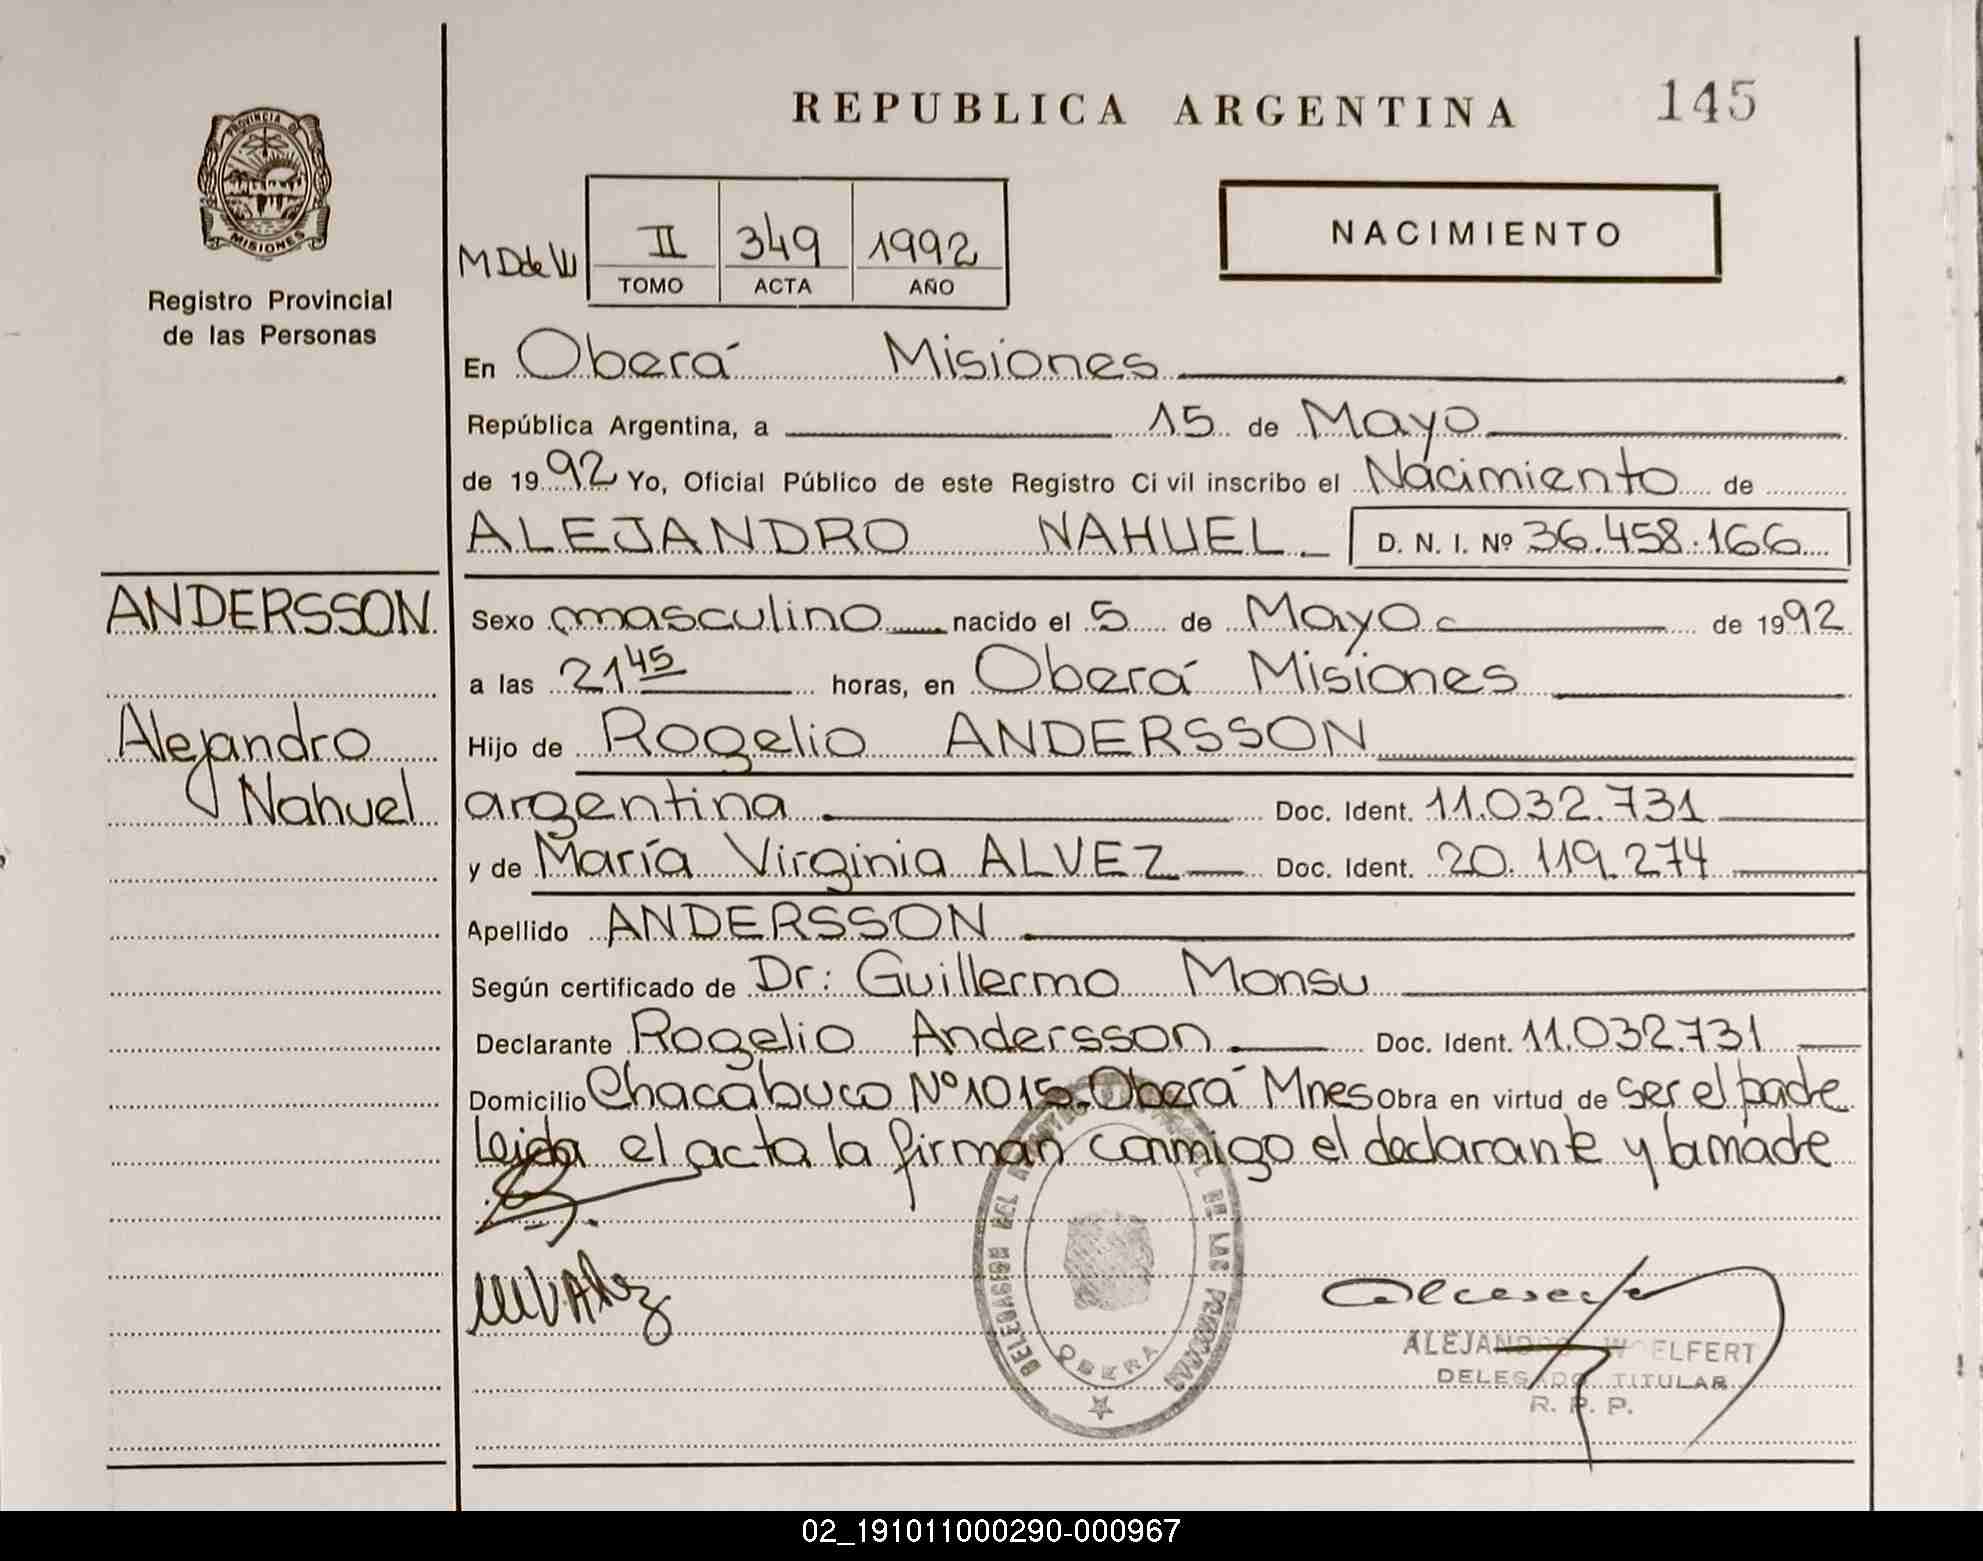 REPUBLICA ARGENTINA
145
PROVINCIA DE
MISIONES
Registro Provincial
de las Personas
II 349 1992
TOMO ACTA AÑO
NACIMIENTO
En Oberá Misiones
República Argentina, a 15 de Mayo
de 1992 Yo, Oficial Público de este Registro Civil inscribo el Nacimiento de
ALEJANDRO NAHUEL D. N. I. Nº 36.458.166
ANDERSSON
Alejandro
Nahuel
Sexo masculino nacido el 5 de Mayo de 1992
a las 21 45 horas, en Oberá Misiones
Hijo de Rogelio ANDERSSON
argentina Doc. Ident. 11.032.731
y de María Virginia ALVEZ Doc. Ident. 20.119.274
Apellido ANDERSSON
Según certificado de Dr: Guillermo Monsu
Declarante Rogelio Andersson Doc. Ident. 11.032.731
Domicilio Chacabuco Nº 1015 Oberá Mnes Obra en virtud de ser el padre
Leida el acta la firman conmigo el declarante y la madre
DELEGACION DEL DE LAS PERSONAS
OBERA
ALEJANDRO WOELFERT
DELEGADO TITULAR
R. P. P.
02_191011000290-000967